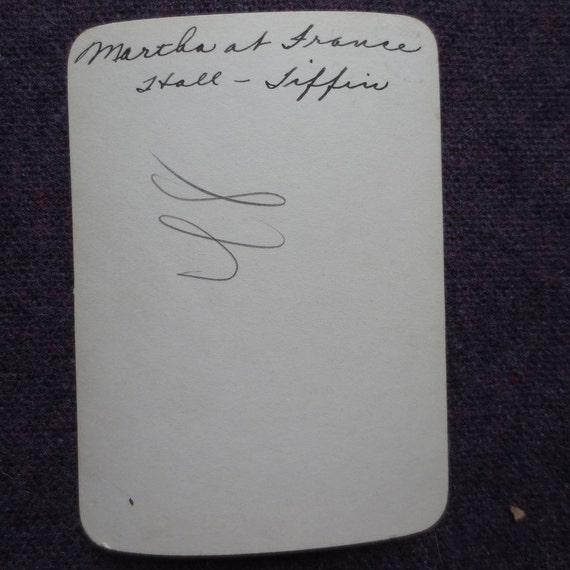 Martha at France
Hall - Tiffin